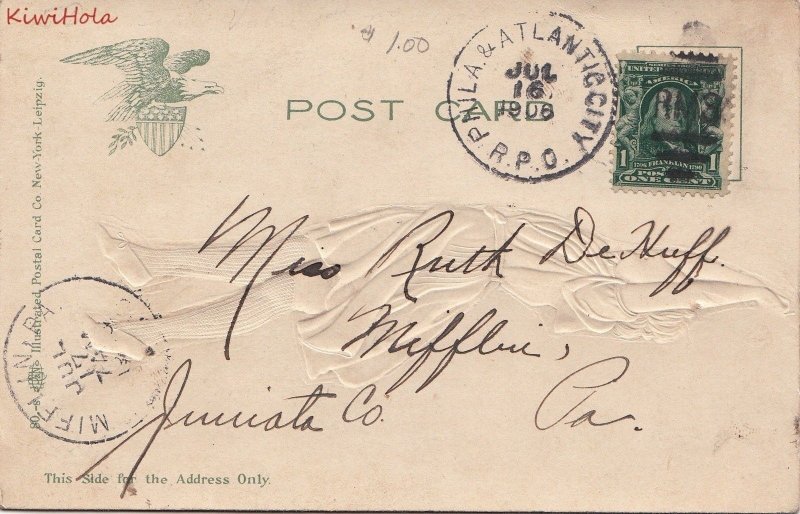 KiwiHola
$ 1.00
POST CARD
PHILA. & ATLANTIC CITY
JUL
16
1906
R.P.O.
UNITED STATES
AMERICA
1 FRANKLIN 1
ONE CENT
RMS
Miss Ruth DeHuff.
Mifflin,
Juniata Co. Pa.
MIFFLIN PA
JUL
17
Illustrated Postal Card Co. New-York-Leipzig.
This Side for the Address Only.